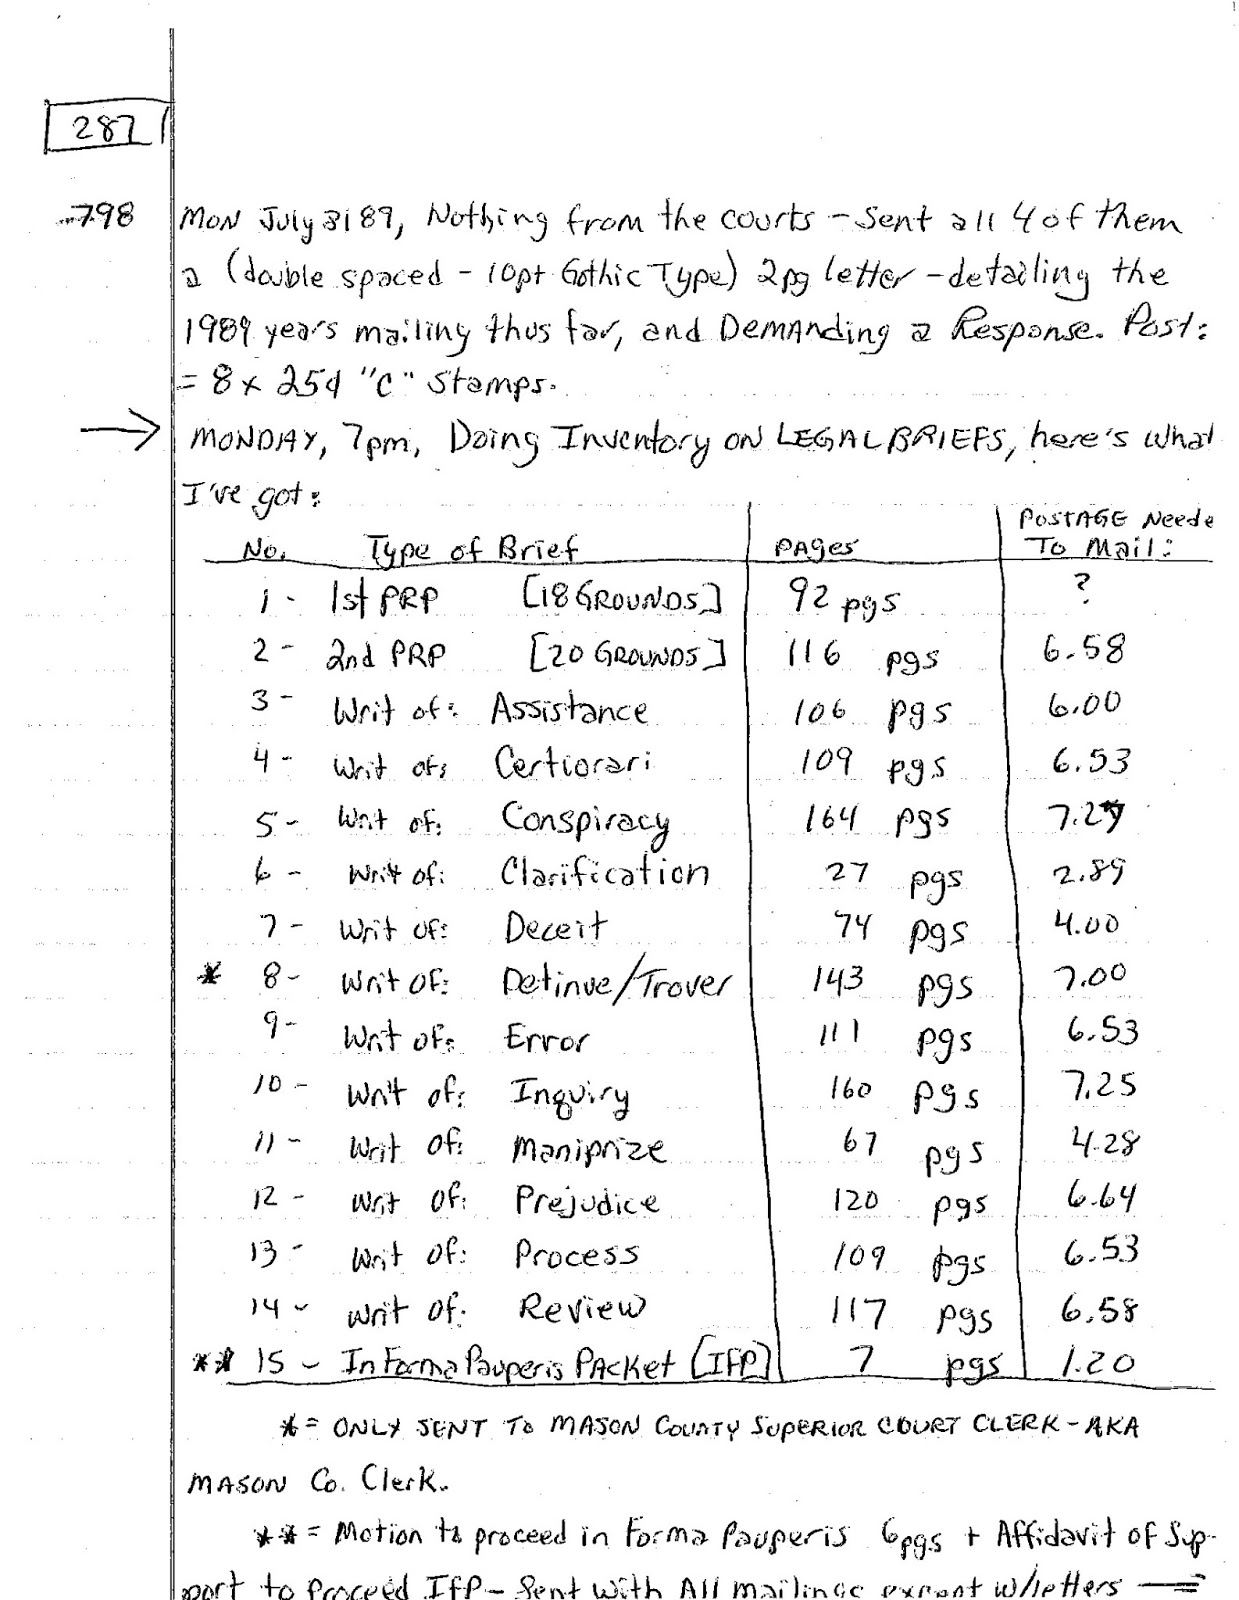 287
798 MON July 31 89, Nothing from the courts - Sent all 4 of them
a (double spaced - 10pt Gothic Type) 2pg letter - detailing the
1989 years mailing thus far, and DEMANding a Response. Post:
= 8 x 25¢ "C" Stamps.
→ MONDAY, 7pm, Doing Inventory ON LEGAL BRIEFS, here's what
I've got:
No. Type of Brief PAges POSTAGE Neede To Mail:
1 - 1st PRP [18 GROUNDS] 92 pgs ?
2 - 2nd PRP [20 GROUNDS] 116 pgs 6.58
3 - Writ of: Assistance 106 pgs 6.00
4 - Writ of: Certiorari 109 pgs 6.53
5 - Writ of: Conspiracy 164 pgs 7.29
6 - Writ of: Clarification 27 pgs 2.89
7 - Writ of: Deceit 74 pgs 4.00
* 8 - Writ of: Detinue/Trover 143 pgs 7.00
9 - Writ of: Error 111 pgs 6.53
10 - Writ of: Inquiry 160 pgs 7.25
11 - Writ of: Maniprize 67 pgs 4.28
12 - Writ of: Prejudice 120 pgs 6.64
13 - Writ of: Process 109 pgs 6.53
14 - Writ of: Review 117 pgs 6.58
** 15 - In Forma Pauperis PAcket [IFP] 7 pgs 1.20
* = ONLY SENT TO MASON COUNTY SUPERIOR COURT CLERK - AKA
MASON Co. Clerk.
** = Motion to proceed in Forma Pauperis 6pgs + Affidavit of Sup-
port to Proceed IFP - Sent with All mailings except w/letters